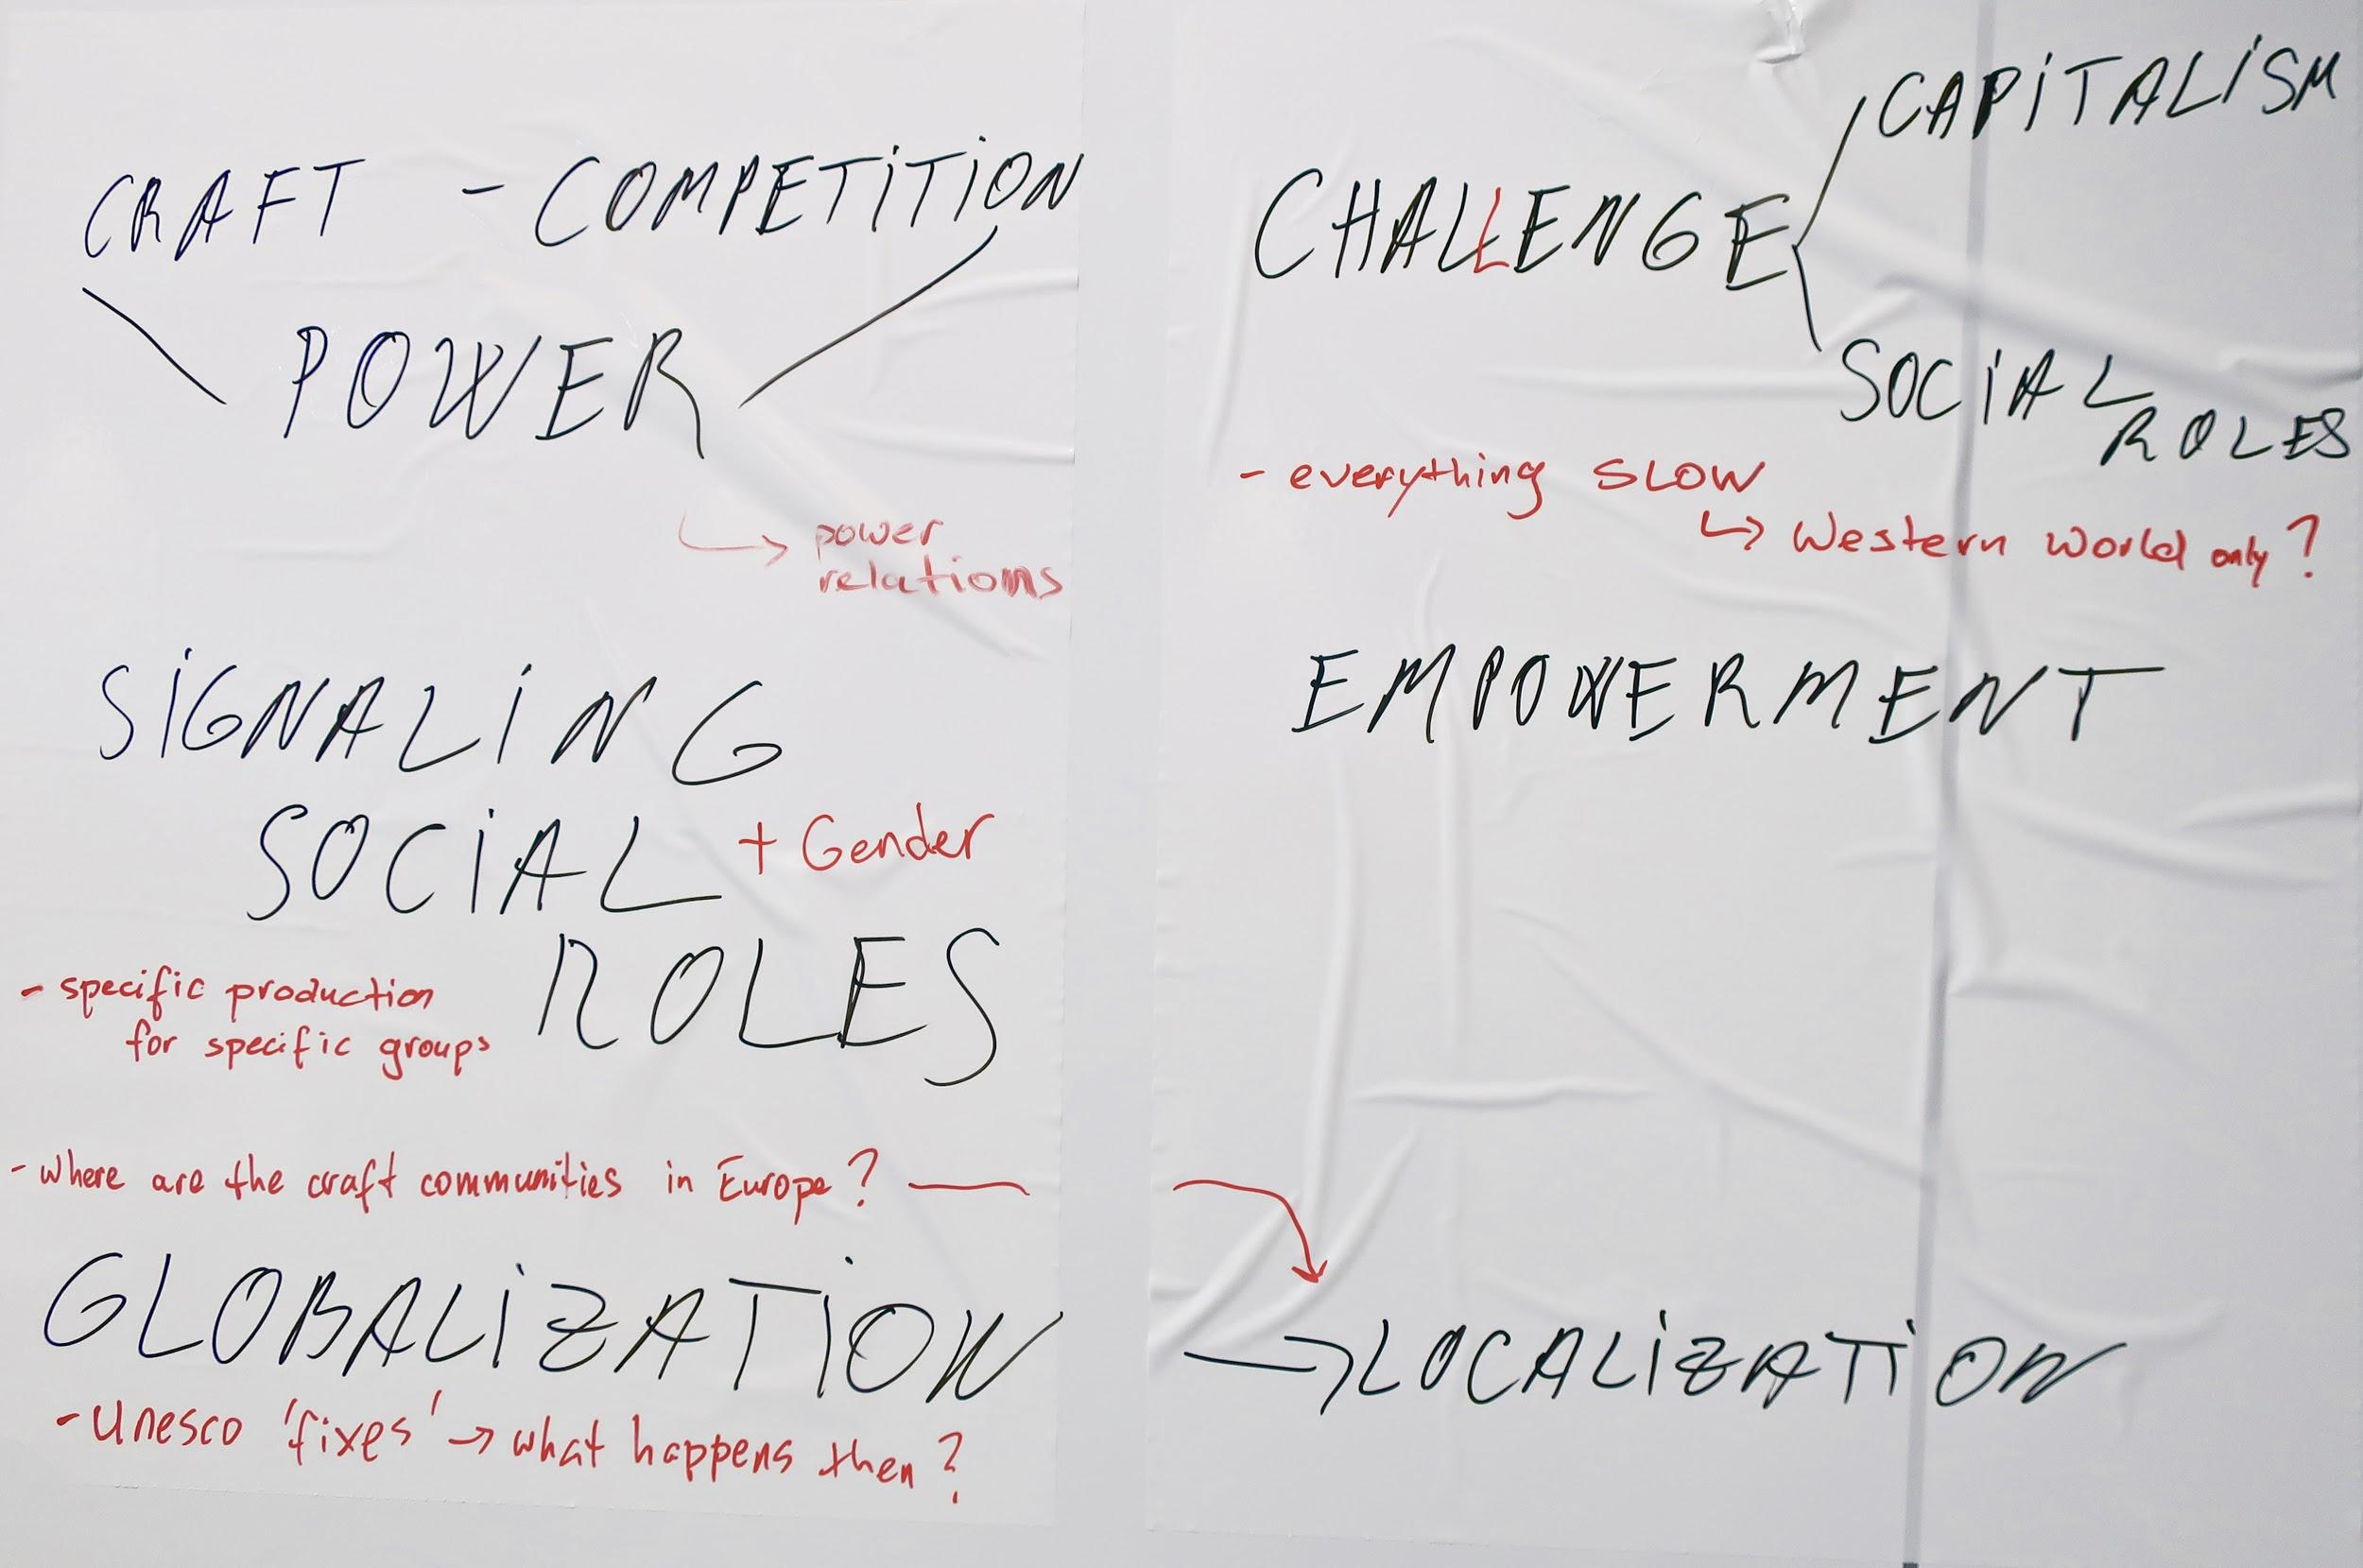 CRAFT - COMPETITION
POWER
↳ power
relations
SIGNALING
SOCIAL + Gender
ROLES
- specific production
for specific groups
- where are the craft communities in Europe?
GLOBALIZATION
- Unesco 'fixes' → what happens then?
CAPITALISM
CHALLENGE
SOCIAL
ROLES
- everything SLOW
↳ Western world only?
EMPOWERMENT
→ LOCALIZATION